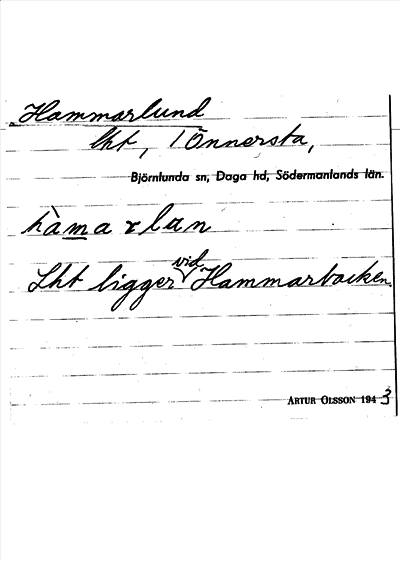 Hammarlund
lht, i Önnersta,
Björnlunda sn, Daga hd, Södermanlands län.
hàmarlan
Lht ligger vid Hammarbacken.
ARTUR OLSSON 1943